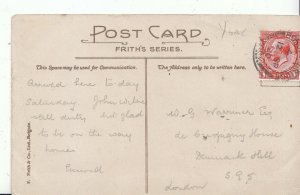 York
POST CARD
FRITH'S SERIES.
This Space may be used for Communication.
The Address only to be written here.
Arrived here to-day
Saturday. John Wilkie
still dusty but glad
to be on the way
home
W G Warriner Esq
de Crespigny House
Denmark Hill
S E 5
London
F. Frith & Co., Ltd., Reigate.